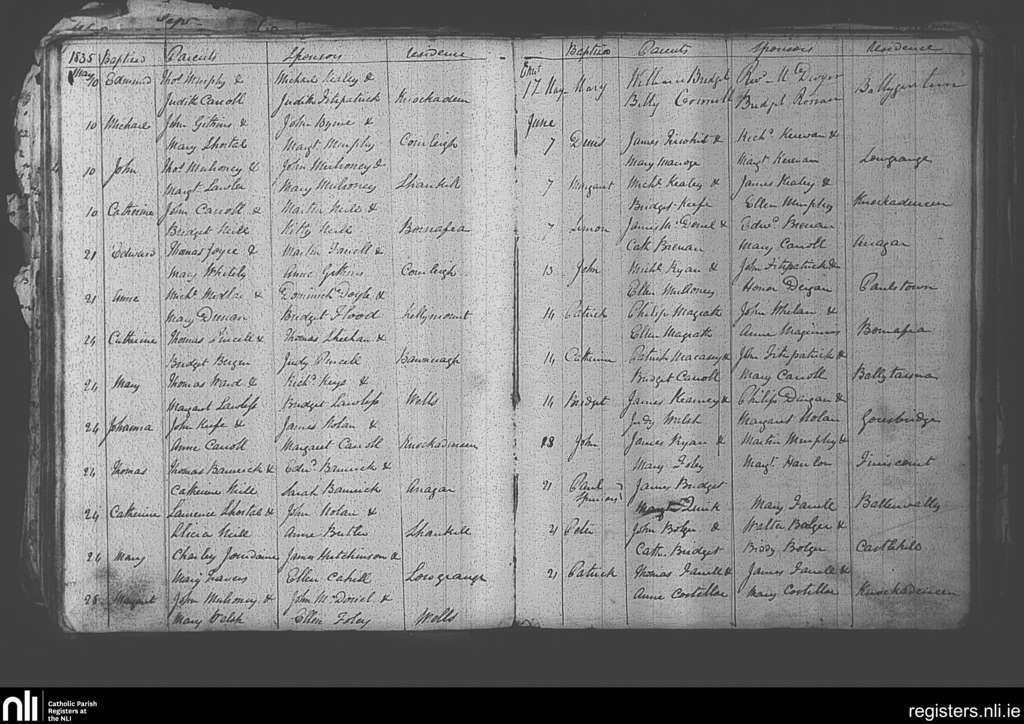 1835 Baptism Parents Sponsors Residence
May 10 Edmund Thos Murphy & Michael Kealey &
Judith Carroll Judith Fitzpatrick Knockadeen
10 Michael John Gittins & John Byrne &
Mary Shortal Margt Murphy Courleigh
10 John Thos Mulroney & John Mulroney &
Margt Lawler Mary Mulroney Shankill
10 Catherine John Carroll & Martin Neill &
Bridget Neill Kitty Neill Bornafea
21 Edward Thomas Joyce & Martin Farrell &
Mary Whitely Anne Gittins Courleigh
21 Anne Michl Medlar & Dominick Doyle &
Mary Duncan Bridget Flood Kellymount
24 Catherine Thomas Purcell & Thomas Sheehan &
Bridget Bergin Judy Purcell
24 Mary Thomas Ward & Richd Keys &
Margaret Lawless Bridget Lawless Wells
24 Johanna John Keefe & James Nolan &
Anne Carroll Margaret Carroll Knockadeenen
24 Thomas Thomas Bannick & Edwd Bannick &
Catherine Neill Sarah Bannick Anagar
24 Catherine Laurence Shortal & John Nolan &
Alicia Neill Anne Butler Shankill
24 Mary Charley Jourdaine James Hutchinson &
Mary Travers Ellen Cahill Lowgrange
28 Margaret John Mulroney & John McDoniel &
Mary Walsh Ellen Foley Wells
Baptism Parents Sponsors Residence
17 May Mary William Bridget Revd Mr Dwyer
Betty Cornwell Bridget Ronan
June
7 Denis James & Richd Keewan &
Mary Margt Keewan Lowgrange
7 Margaret Michl Kealey & James Kealey &
Bridget Keefe Ellen Murphy Knockadeenen
7 Simon James McDoniel & Edwd Brenan
Cath Brenan Mary Carroll Anagar
13 John Michl Ryan & John Fitzpatrick &
Ellen Mulloney Honor Deegan Paulstown
14 Patrick Philip Magrath & John Whelan &
Ellen Magrath Anne Maginnis Bornafea
14 Catherine Patrick Macasey & John Fitzpatrick &
Bridget Carroll Mary Carroll Ballytarsna
14 Bridget James Kearney & Philip Duigan &
Judy Welsh Margaret Nolan Goresbridge
18 John James Ryan & Martin Murphy &
Mary Foley Margt Hanlon
21 Paul James Bridget
Mary Farrell
21 Peter John Bolger & Walter Bolger &
Cath. Bridget Biddy Bolger Castlekelly
21 Patrick Thomas Farrell & James Farrell &
Anne Costillar Mary Costillar Knockadeenen
nli
Catholic Parish
Registers at
the NLI
registers.nli.ie